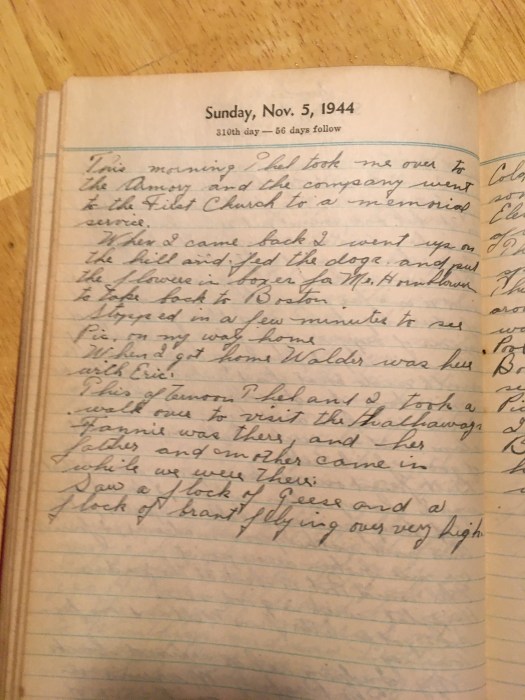 Sunday, Nov. 5, 1944
310th day — 56 days follow
This morning Phel took me over to
the Armory and the company went
to the First Church to a memorial
service.
When I came back I went up on
the hill and fed the dogs and put
the flowers in boxes for Mr. Hornblower
to take back to Boston.
Stopped in a few minutes to see
Pic. on my way home
When I got home Walder was here
with Eric.
This afternoon Phel and I took a
walk over to visit the Hathaways
Fannie was there, and her
father and mother came in
while we were there.
Saw a flock of Geese and a
flock of brant flying over very high